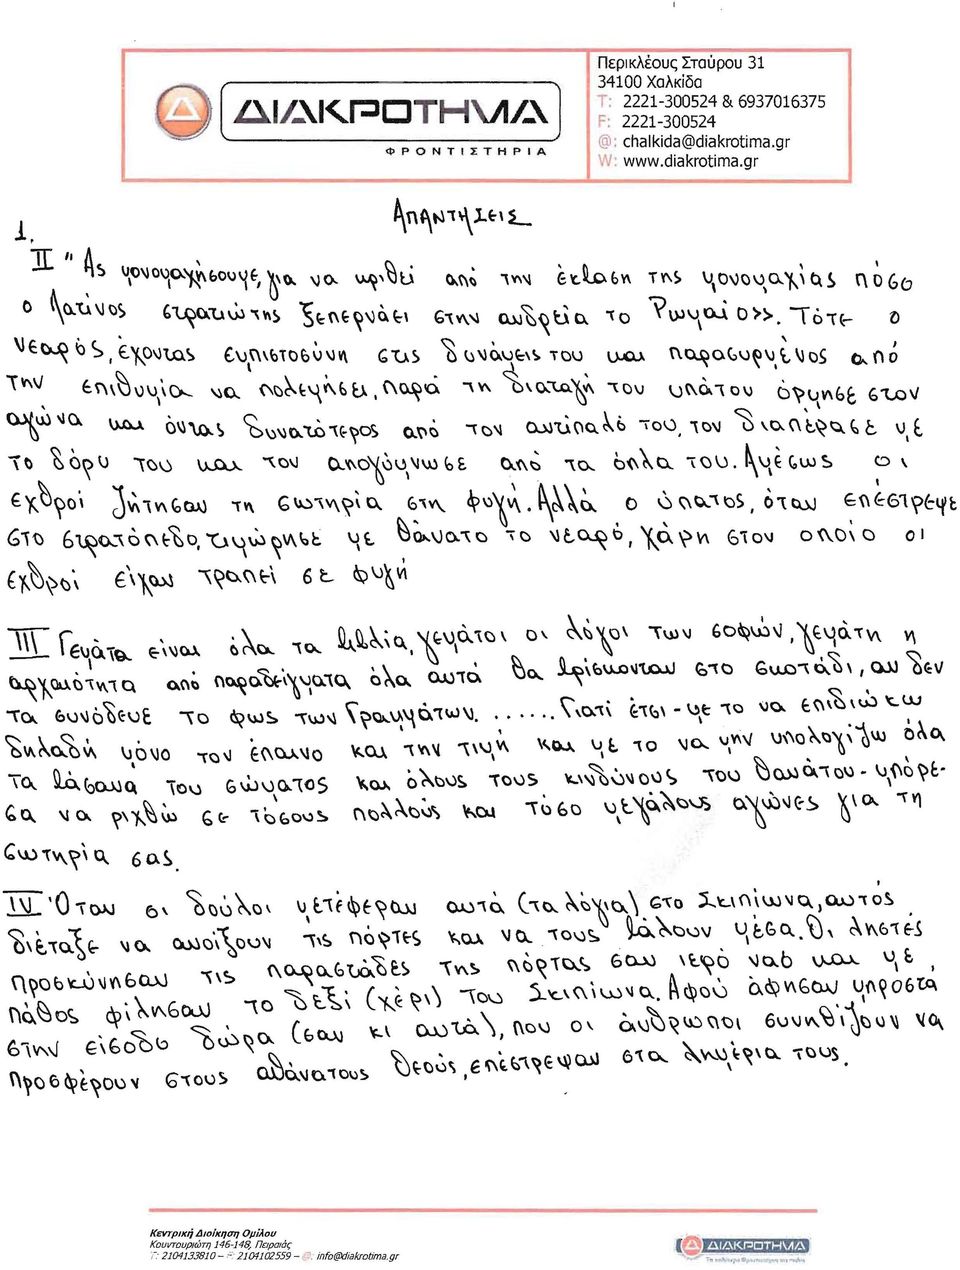 Περικλέους Σταύρου 31
34100 Χαλκίδα
T: 2221-300524 & 6937016375
F: 2221-300524
@: chalkida@diakrotima.gr
W: www.diakrotima.gr
ΔΙΑΚΡΟΤΗΜΑ
ΦΡΟΝΤΙΣΤΗΡΙΑ
ΑΠΑΝΤΗΣΕΙΣ
1.
II " Ας μονομαχήσουμε, για να κριθεί από την έκβαση της μονομαχίας πόσο
ο Λατίνος στρατιώτης ξεπερνάει στην ανδρεία το Ρωμαίο>>. Τότε ο
νεαρός, έχοντας εμπιστοσύνη στις δυνάμεις του και παρασυρμένος από
την επιθυμία να πολεμήσει, παρά τη διαταγή του υπάτου όρμησε στον
αγώνα και όντας δυνατότερος από τον αντίπαλό του, τον διαπέρασε με
το δόρυ του και τον απογύμνωσε από τα όπλα του. Αμέσως οι
εχθροί ζήτησαν τη σωτηρία στη φυγή. Αλλά ο ύπατος, όταν επέστρεψε
στο στρατόπεδο, τιμώρησε με θάνατο το νεαρό, χάρη στον οποίο οι
εχθροί είχαν τραπεί σε φυγή
III Γεμάτα είναι όλα τα βιβλία, γεμάτοι οι λόγοι των σοφών, γεμάτη η
αρχαιότητα από παραδείγματα όλα αυτά θα βρίσκονταν στο σκοτάδι, αν δεν
τα συνόδευε το φως των Γραμμάτων. ...... Γιατί έτσι - με το να επιδιώκω
δηλαδή μόνο τον έπαινο και την τιμή και με το να μην υπολογίζω όλα
τα βάσανα του σώματος και όλους τους κινδύνους του θανάτου - μπόρε-
σα να ριχθώ σε τόσους πολλούς και τόσο μεγάλους αγώνες για τη
σωτηρία σας.
IV Όταν οι δούλοι μετέφεραν αυτά (τα λόγια) στο Σκιπίωνα, αυτός
διέταξε να ανοίξουν τις πόρτες και να τους βάλουν μέσα. Οι ληστές
προσκύνησαν τις παραστάδες της πόρτας σαν ιερό ναό και με
πάθος φίλησαν το δεξί (χέρι) του Σκιπίωνα. Αφού άφησαν μπροστά
στην είσοδο δώρα (σαν κι αυτά), που οι άνθρωποι συνηθίζουν να
προσφέρουν στους αθάνατους θεούς, επέστρεψαν στα λημέρια τους.
Κεντρική Διοίκηση Ομίλου
Κουντουριώτη 146-148, Πειραιάς
T: 2104133810 – F: 2104102559 – @: info@diakrotima.gr
ΔΙΑΚΡΟΤΗΜΑ